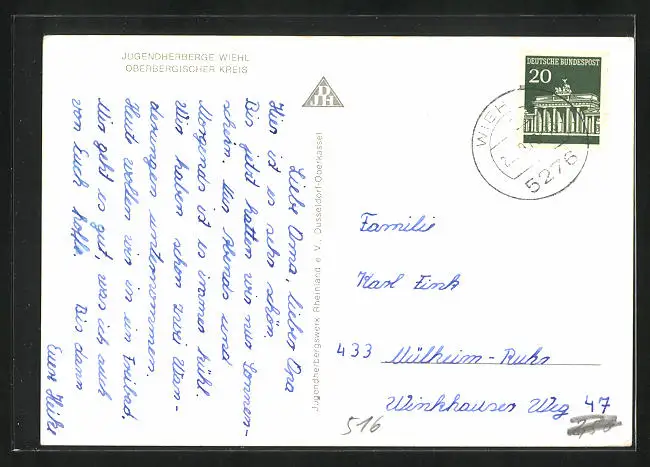 JUGENDHERBERGE WIEHL
OBERBERGISCHER KREIS
Liebe Oma, lieber Opa
Hier ist es sehr schön.
Bis jetzt hatten wir nur Sonnen-
schein. Nur Abends und
Morgends ist es immer kühl.
Wir haben schon zwei Wan-
derungen unternommen.
Heut wollen wir in ein Freibad.
Mir geht es gut, was ich auch
von Euch hoffe. Bis dann
Eure Heike
Jugendherbergswerk Rheinland e. V., Düsseldorf-Oberkassel
DEUTSCHE BUNDESPOST
20
WIEHL
5276
Familie
Karl Fink
433 Mülheim-Ruhr
Winkhauser Weg 47
516